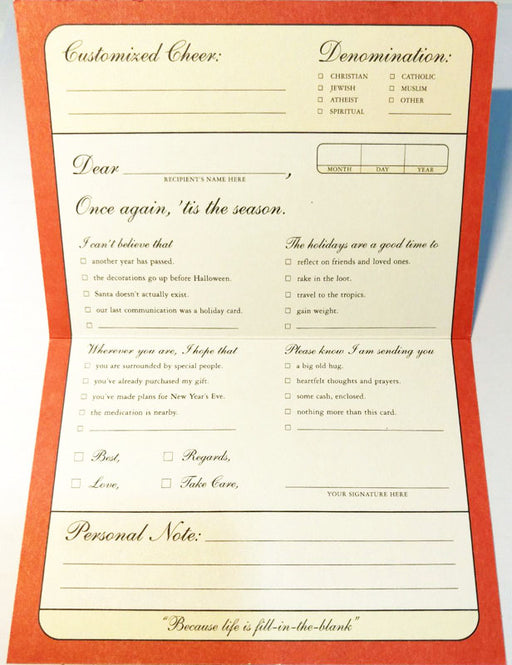 Customized Cheer:
Denomination:
CHRISTIAN
CATHOLIC
JEWISH
MUSLIM
ATHEIST
OTHER
SPIRITUAL
Dear ,
RECIPIENT'S NAME HERE
MONTH DAY YEAR
Once again, 'tis the season.
I can't believe that
another year has passed.
the decorations go up before Halloween.
Santa doesn't actually exist.
our last communication was a holiday card.
The holidays are a good time to
reflect on friends and loved ones.
rake in the loot.
travel to the tropics.
gain weight.
Wherever you are, I hope that
you are surrounded by special people.
you've already purchased my gift.
you've made plans for New Year's Eve.
the medication is nearby.
Please know I am sending you
a big old hug.
heartfelt thoughts and prayers.
some cash, enclosed.
nothing more than this card.
Best,
Regards,
Love,
Take Care,
YOUR SIGNATURE HERE
Personal Note:
"Because life is fill-in-the-blank"